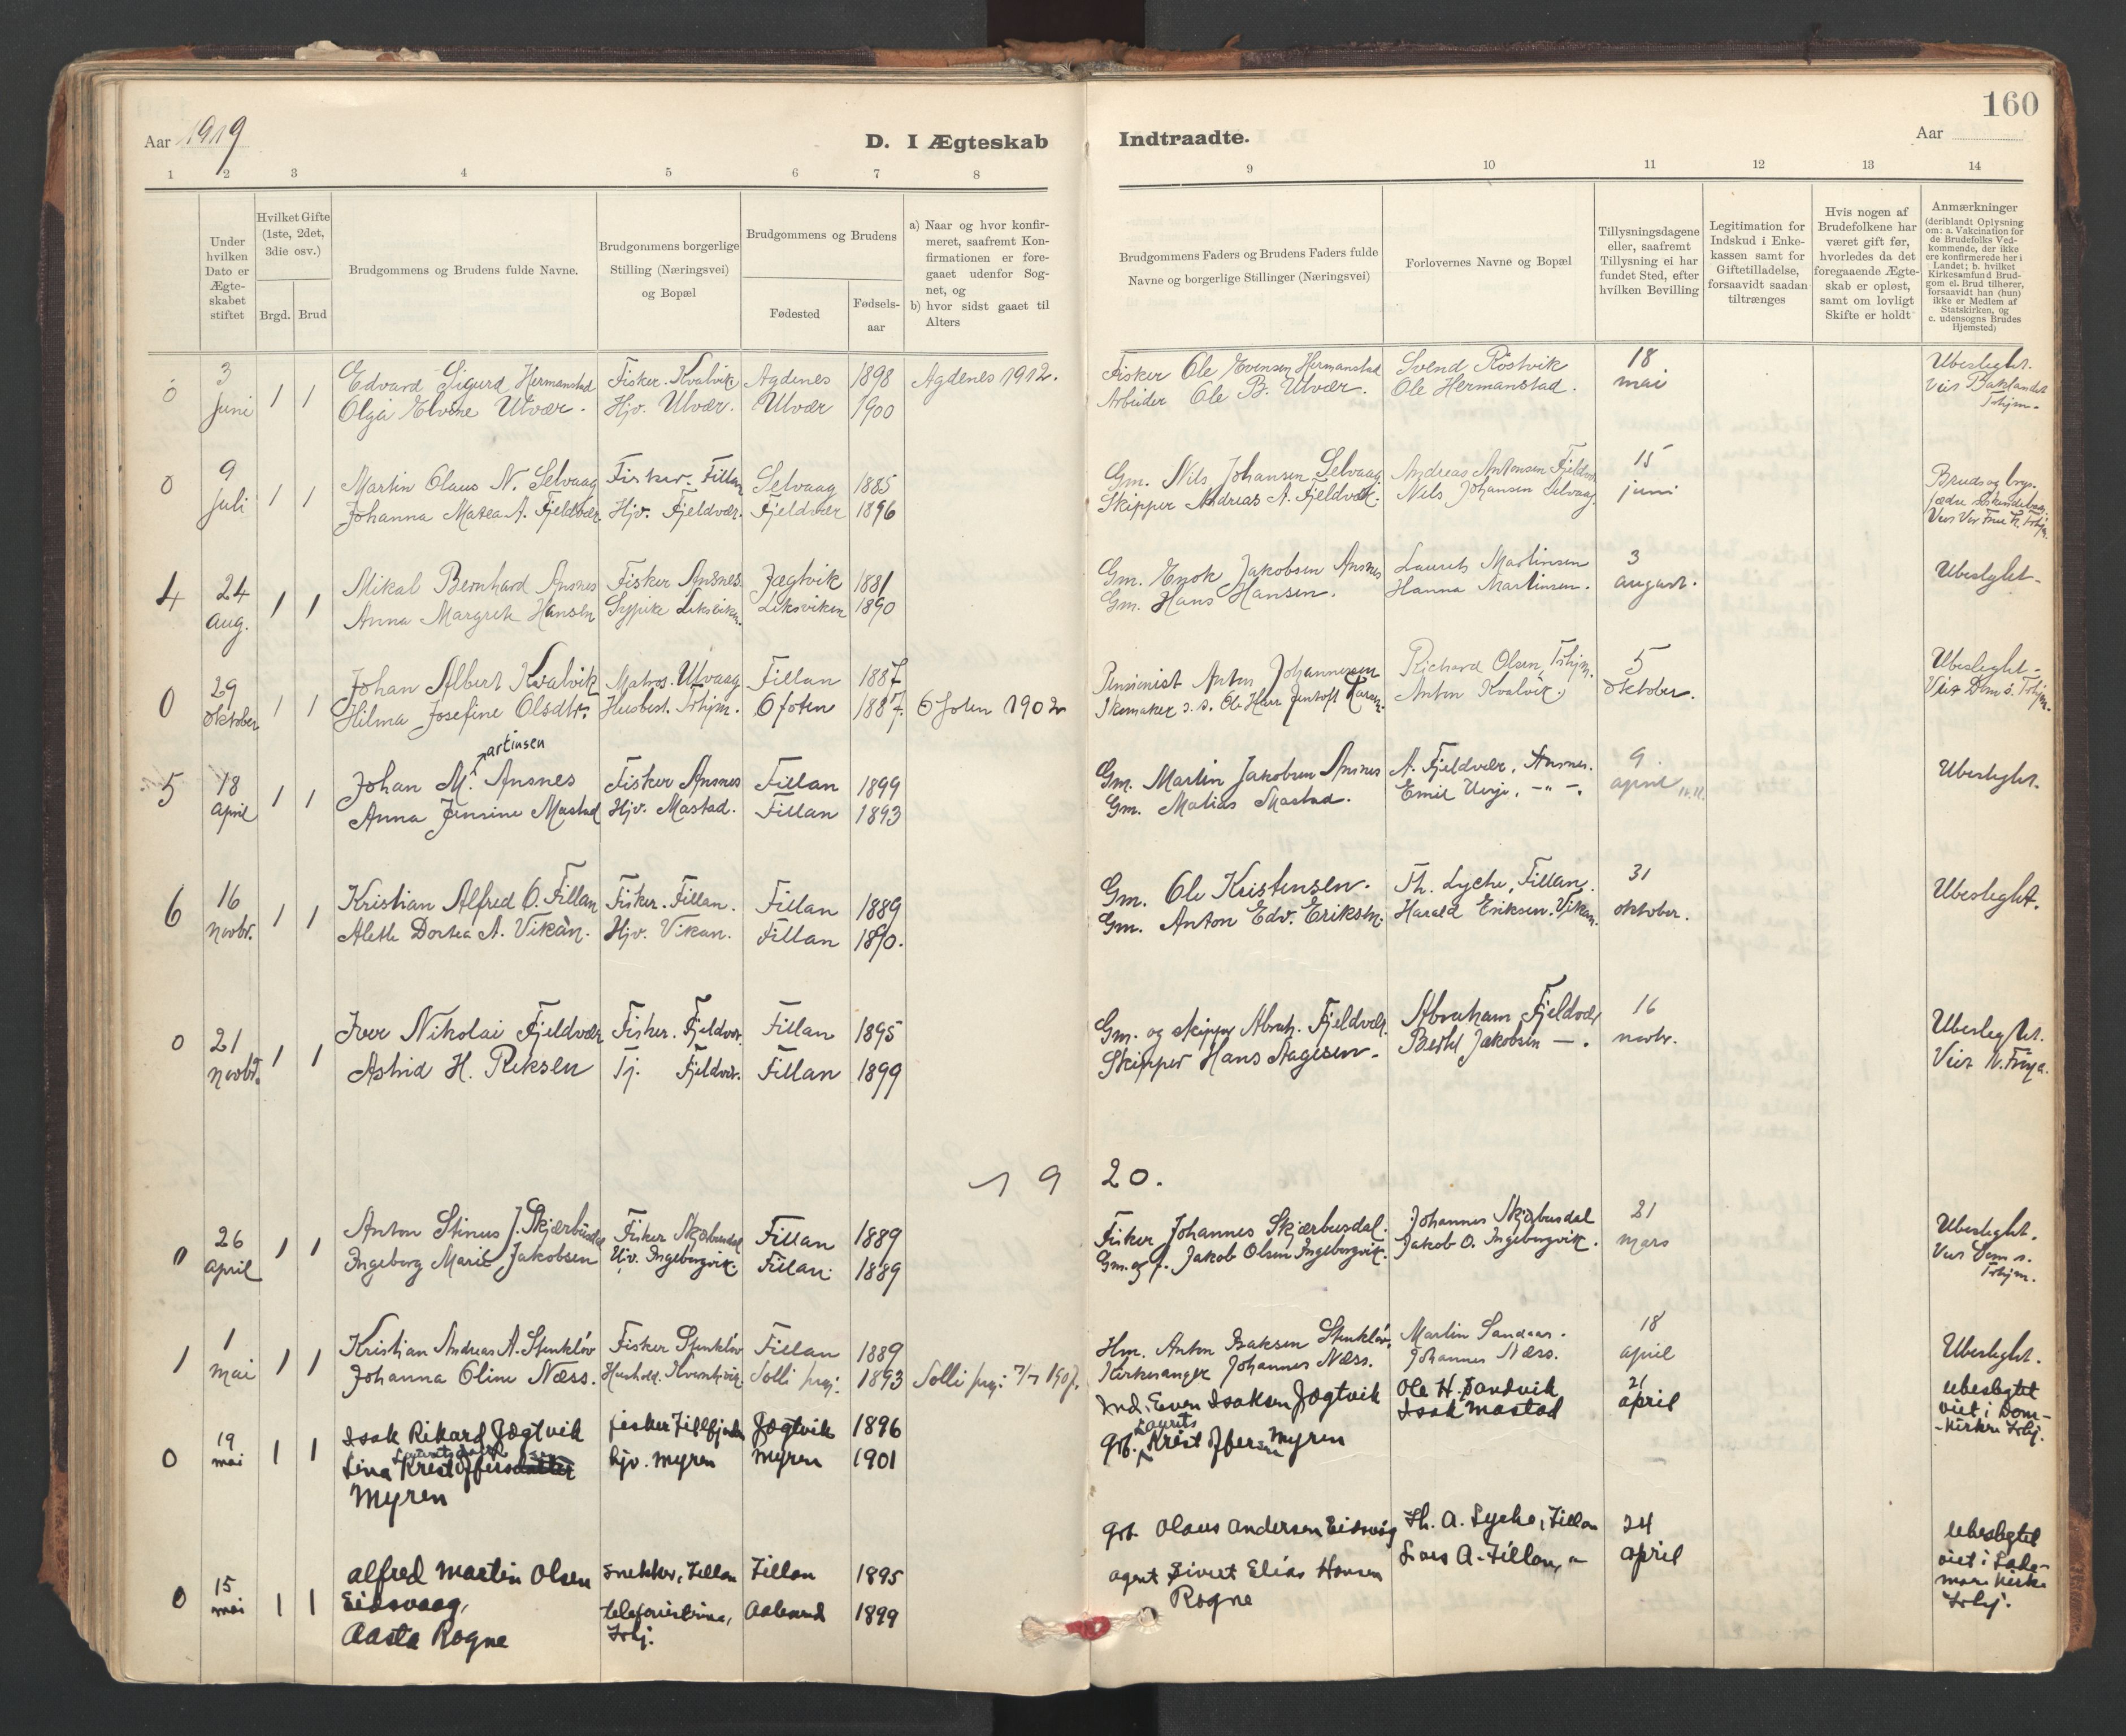 160
Aar 1919
D. I Ægteskab
Indtraadte.
Aar
1 2 3 4 5 6 7 8
9 10 11 12 13 14
Under hvilken Dato er Ægte-skabet stiftet
Hvilket Gifte (1ste, 2det, 3die osv.)
Brgd. Brud
Brudgommens og Brudens fulde Navne.
Brudgommens borgerlige Stilling (Næringsvei) og Bopæl
Brudgommens og Brudens
Fødested
Fødsels-aar
a) Naar og hvor konfir-meret, saafremt Kon-firmationen er fore-gaaet udenfor Sog-net, og
b) hvor sidst gaaet til Alters
Brudgommens Faders og Brudens Faders fulde Navne og borgerlige Stillinger (Næringsvei)
Forlovernes Navne og Bopæl
Tillysningsdagene eller, saafremt Tillysning ei har fundet Sted, efter hvilken Bevilling
Legitimation for Indskud i Enke-kassen samt for Giftetilladelse, forsaavidt saadan tiltrænges
Hvis nogen af Brudefolkene har været gift før, hvorledes da det foregaaende Ægte-skab er opløst, samt om lovligt Skifte er holdt
Anmærkninger (deriblandt Oplysning om: a. Vakcination for de Brudefolks Ved-kommende, der ikke ere konfirmerede her i Landet; b. hvilket Kirkesamfund Brud-gom el. Brud tilhører, forsaavidt han (hun) ikke er Medlem af Statskirken, og c. udensogns Brudes Hjemsted)
0 3 juni 1 1 Edvard Sigurd Hermanstad Fisker. Kvalvik Agdenes 1898 Agdenes 1912. Fisker Ole Evensen Hermanstad Svend Rostvik 18 mai Ubeslegtet.
Olga Elvine Utvær. Hjv. Utvær. Utvær 1900 Arbeider Ole B. Utvær. Ole Hermanstad. Viet Baklandet Trhjm.
0 9 juli 1 1 Martin Olaus N. Selvaag Fisker. Fillan Selvaag 1885 Gm. Nils Johansen Selvaag. Andreas Antonsen Fjeldvær 15 juni
Johanna Matea A. Fjeldvær. Hjv. Fjeldvær. Fjeldvær 1896 Skipper Andreas A. Fjeldvær. Nils Johansen Selvaag. Viet Vor Frue K. Trhjm.
4 24 aug. 1 1 Mikal Bernhard Ansnes Fisker Ansnes. Jægtvik 1881 Gm. Enok Jakobsen Ansnes Laurits Martinsen 3 august. Ubeslegtet.
Anna Margrete Hansen Sypike Leksviken. Leksviken 1890 Gm. Hans Hansen. Hanna Martinsen.
0 29 oktober 1 1 Johan Albert Kvalvik Matros. Utvaag Fillan 1887 Pensionist Anton Johannesen Richard Olsen, Trhjm. 5 oktober. Ubeslegtet.
Hilma Josefine Olsdtr. Husbest. Trhjm. Ofoten 1887. Ofoten 1902 Skomaker Anton Kvalvik. Viet Dom k. Trhjm.
5 18 april 1 1 Johan M. artinsen Ansnes Fisker Ansnes Fillan 1899 Gm. Martin Jakobsen Ansnes A. Fjeldvær, Ansnes. 9 april Ubeslegtet.
Anna Jensine Mastad Hjv. Mastad. Fillan 1893 Gm. Matias Mastad. Emil
6 16 novbr. 1 1 Kristian Alfred O. Fillan Fisker. Fillan. Fillan 1889 Gm. Ole Kristensen. Th. Lyche, Fillan. 31 oktober. Ubeslegtet.
Alette Dortea A. Vikan. Hjv. Vikan. Fillan 1890. Gm. Anton Edv. Eriksen. Harald Eriksen. Vikan.
0 21 novbr. 1 1 Iver Nikolai Fjeldvær Fisker. Fjeldvær. Fillan 1895 Gm. og skipper Abrah. Fjeldvær. Abraham Fjeldvær 16 novbr. Ubeslegtet.
Astrid H. Reksen Tj. Fjeldvær. Fillan 1899 Skipper Hans Aagesen. Bertel Jakobsen — . Viet N. Frøya.
19 20.
0 26 april 1 1 Anton Stinus J. Skjærbusdal Fisker Skjærbusdal Fillan 1889 Fisker Johannes Skjærbusdal. Johannes Skjærbusdal 21 mars Ubeslegtet.
Ingeborg Marie Jakobsen Hjv. Ingeborgvik. Fillan. 1889 Gm. og f. Jakob Olsen Ingeborgvik. Jakob O. Ingeborgvik. Viet Dom k. Trhjm.
1 1 mai 1 1 Kristian Andreas A. Stenkløv Fisker Stenkløv Fillan 1889 Hm. Anton Isaksen Stenkløv. Martin Sandaas. 18 april Ubeslegtet.
Johanna Oline Næss. Hushold. Solli prgj. 1893 Solli prgj. 7/7 1907. Kirkesanger Johannes Næss. Johannes Næss.
0 19 mai 1 1 Isak Rikard Jægtvik fisker Fillfjorden Jægtvik 1896 Ind. Even Isaksen Jægtvik Ole H. Sandvik 21 april Ubeslegtet
Lina Kristoffersdatter hjv. Myren Myren 1901 Grb. Laurits Kristoffersen Myren Isak Mastad viet i Dom-kirken Trhj.
Myren
0 15 mai 1 1 Alfred Martin Olsen snekker, Fillan Fillan 1895 grb. Olaus Andersen Eidsvåg Th. A. Lyche, Fillan 24 april Ubeslegtet
Eidsvaag, telefonistinne, Trhj. Aalesund 1899 agent Sivert Elias Hansen Rogne Lars A. Fillan, " viet i Lade-moen kirke Trhj.
Aasta Rogne